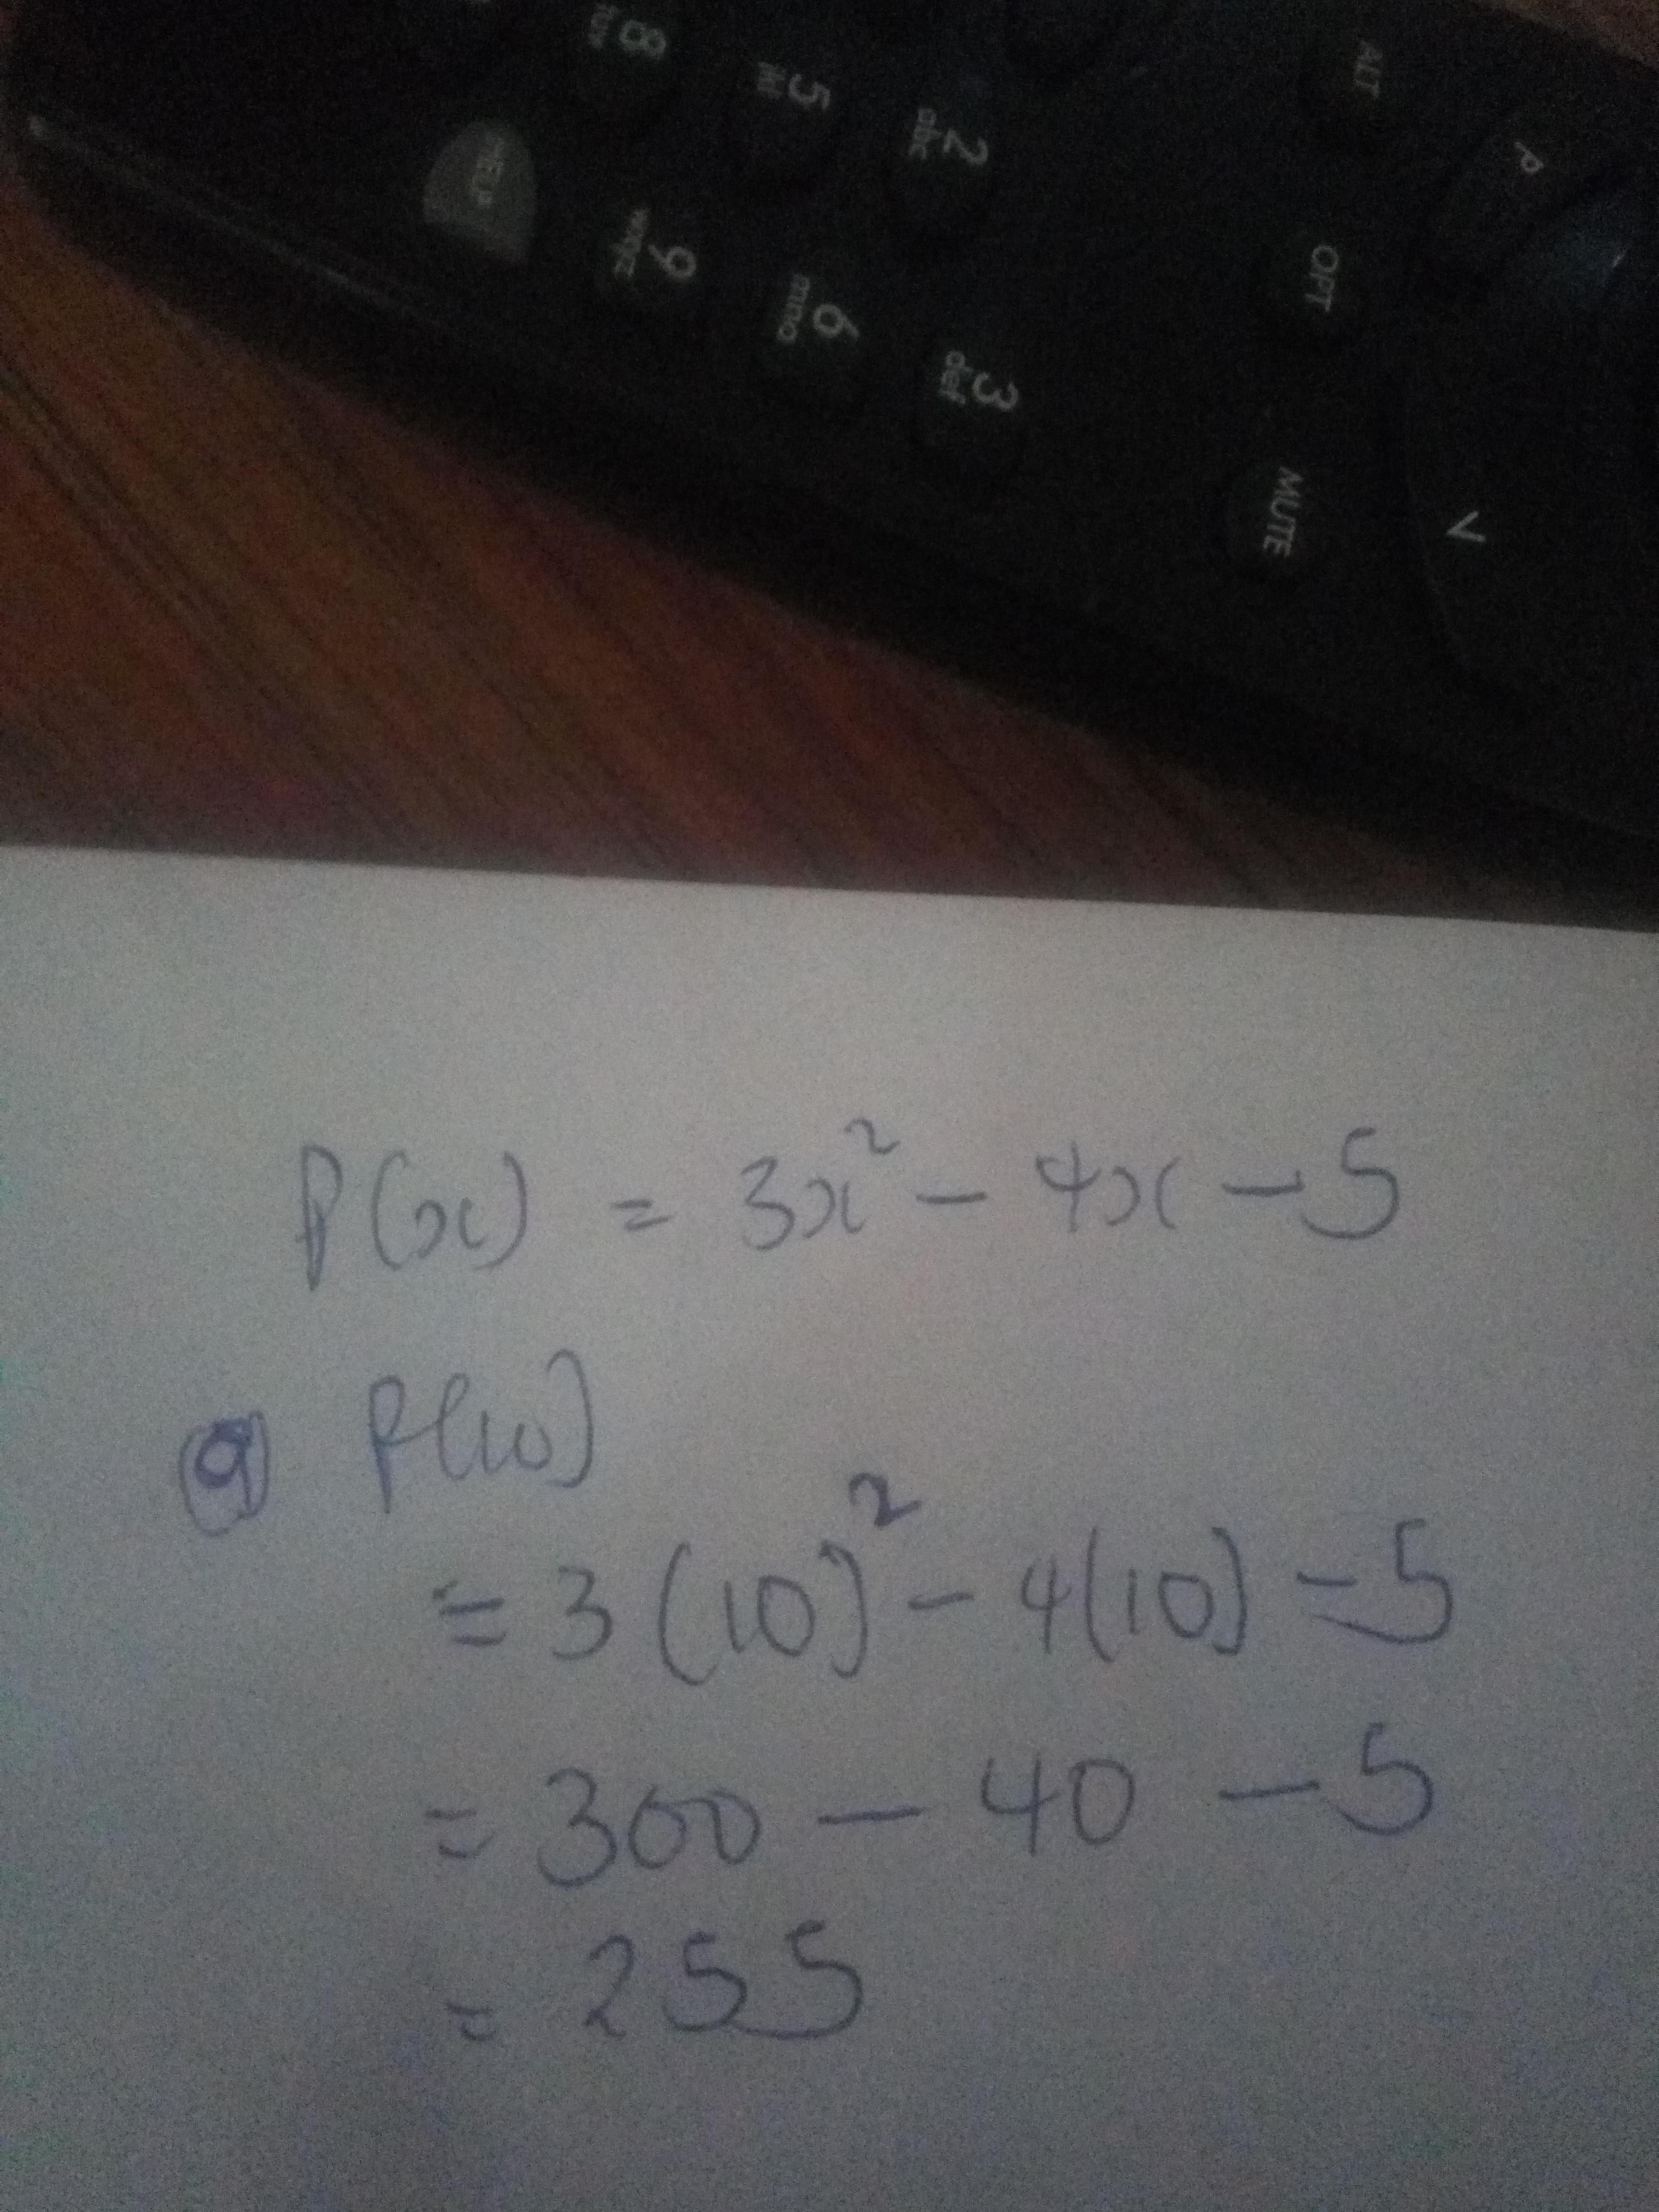 8 tuv
5 jkl
2 abc
ALT
P
HELP
9 wxyz
6 mno
3 def
OPT
MUTE
V
P(x) = 3x² - 4x - 5
a P(10)
= 3(10)² - 4(10) - 5
= 300 - 40 - 5
= 255